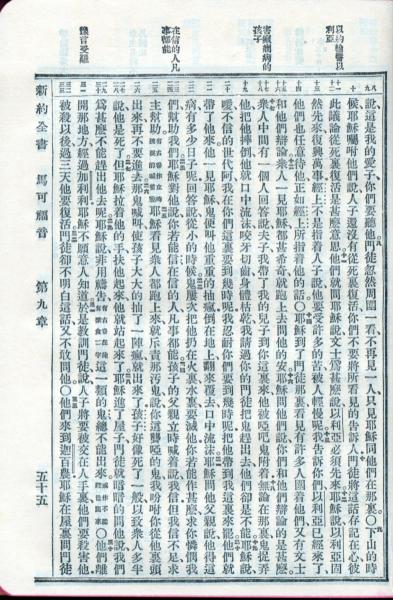 以利亞
醫癲癇病的孩子
在信的人凡事都能
豫言受難
說這是我的愛子你們要聽他門徒忽然周圍一看不再見一人只見耶穌同他們在那裏〇下山的時
候耶穌囑咐他們說人子還沒有從死裏復活你們不要將所看見的告訴人門徒將這話存記在心彼
此議論從死裏復活是甚麼意思他們就問耶穌說文士爲甚麼說以利亞必須先來耶穌說以利亞固
然先來復興萬事經上不是指着人子說他要受許多的苦被人輕慢呢我告訴你們以利亞已經來了
他們也任意待他正如經上所指着他的話〇耶穌到了門徒那裏看見有許多人圍着他們又有文士
和他們辯論衆人一見耶穌都甚希奇就跑上去問他的安耶穌問他們說你們和他們辯論的是甚麼
衆人中間有一個人回答說夫子我帶了我的兒子到你這裏來他被啞吧鬼附着無論在那裏鬼捉弄
他把他摔倒他就口中流沫咬牙切齒身體枯乾我請過你的門徒把鬼趕出去他們卻是不能耶穌說
噯不信的世代阿我在你們這裏要到幾時呢我忍耐你們要到幾時呢把他帶到我這裏來罷他們就
帶了他來他一見耶穌鬼便叫他重重的抽瘋倒在地上翻來覆去口中流沫耶穌問他父親說他得這
病有多少日子呢回答說從小的時候鬼屢次把他扔在火裏水裏要滅他你若能作甚麼求你憐憫我
們幫助我們耶穌對他說你若能信在信的人凡事都能孩子的父親立時喊着說我信但我信不足求
主幫助耶穌看見衆人都跑上來就斥責那污鬼說你這聾啞的鬼我吩咐你從他裏頭
出來再不要進去那鬼喊叫使孩子大大的抽了一陣瘋就出來了孩子好像死了一般以致衆人多半
說他是死了但耶穌拉着他的手扶他起來他就站起來了耶穌進了屋子門徒就暗暗的問他說我們
爲甚麼不能趕出他去呢耶穌說非用禱告這一類的鬼總不能出來〇他們離
開那地方經過加利利耶穌不願意人知道於是教訓門徒說人子將要被交在人手裏他們要殺害他
被殺以後過三天他要復活門徒卻不明白這話又不敢問他〇他們來到迦百農耶穌在屋裏問門徒
新約全書 馬可福音 第九章 五十五